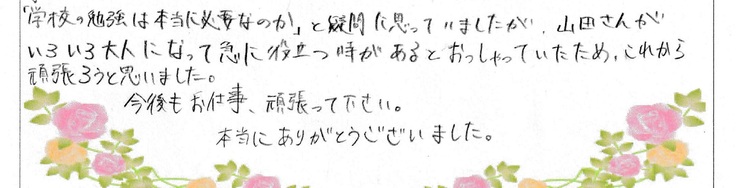 「学校の勉強は本当に必要なのか」と疑問に思っていましたが、山田さんが
いろいろ大人になって急に役立つ時があるとおっしゃっていたため、これから
頑張ろうと思いました。
今後もお仕事、頑張って下さい。
本当にありがとうございました。